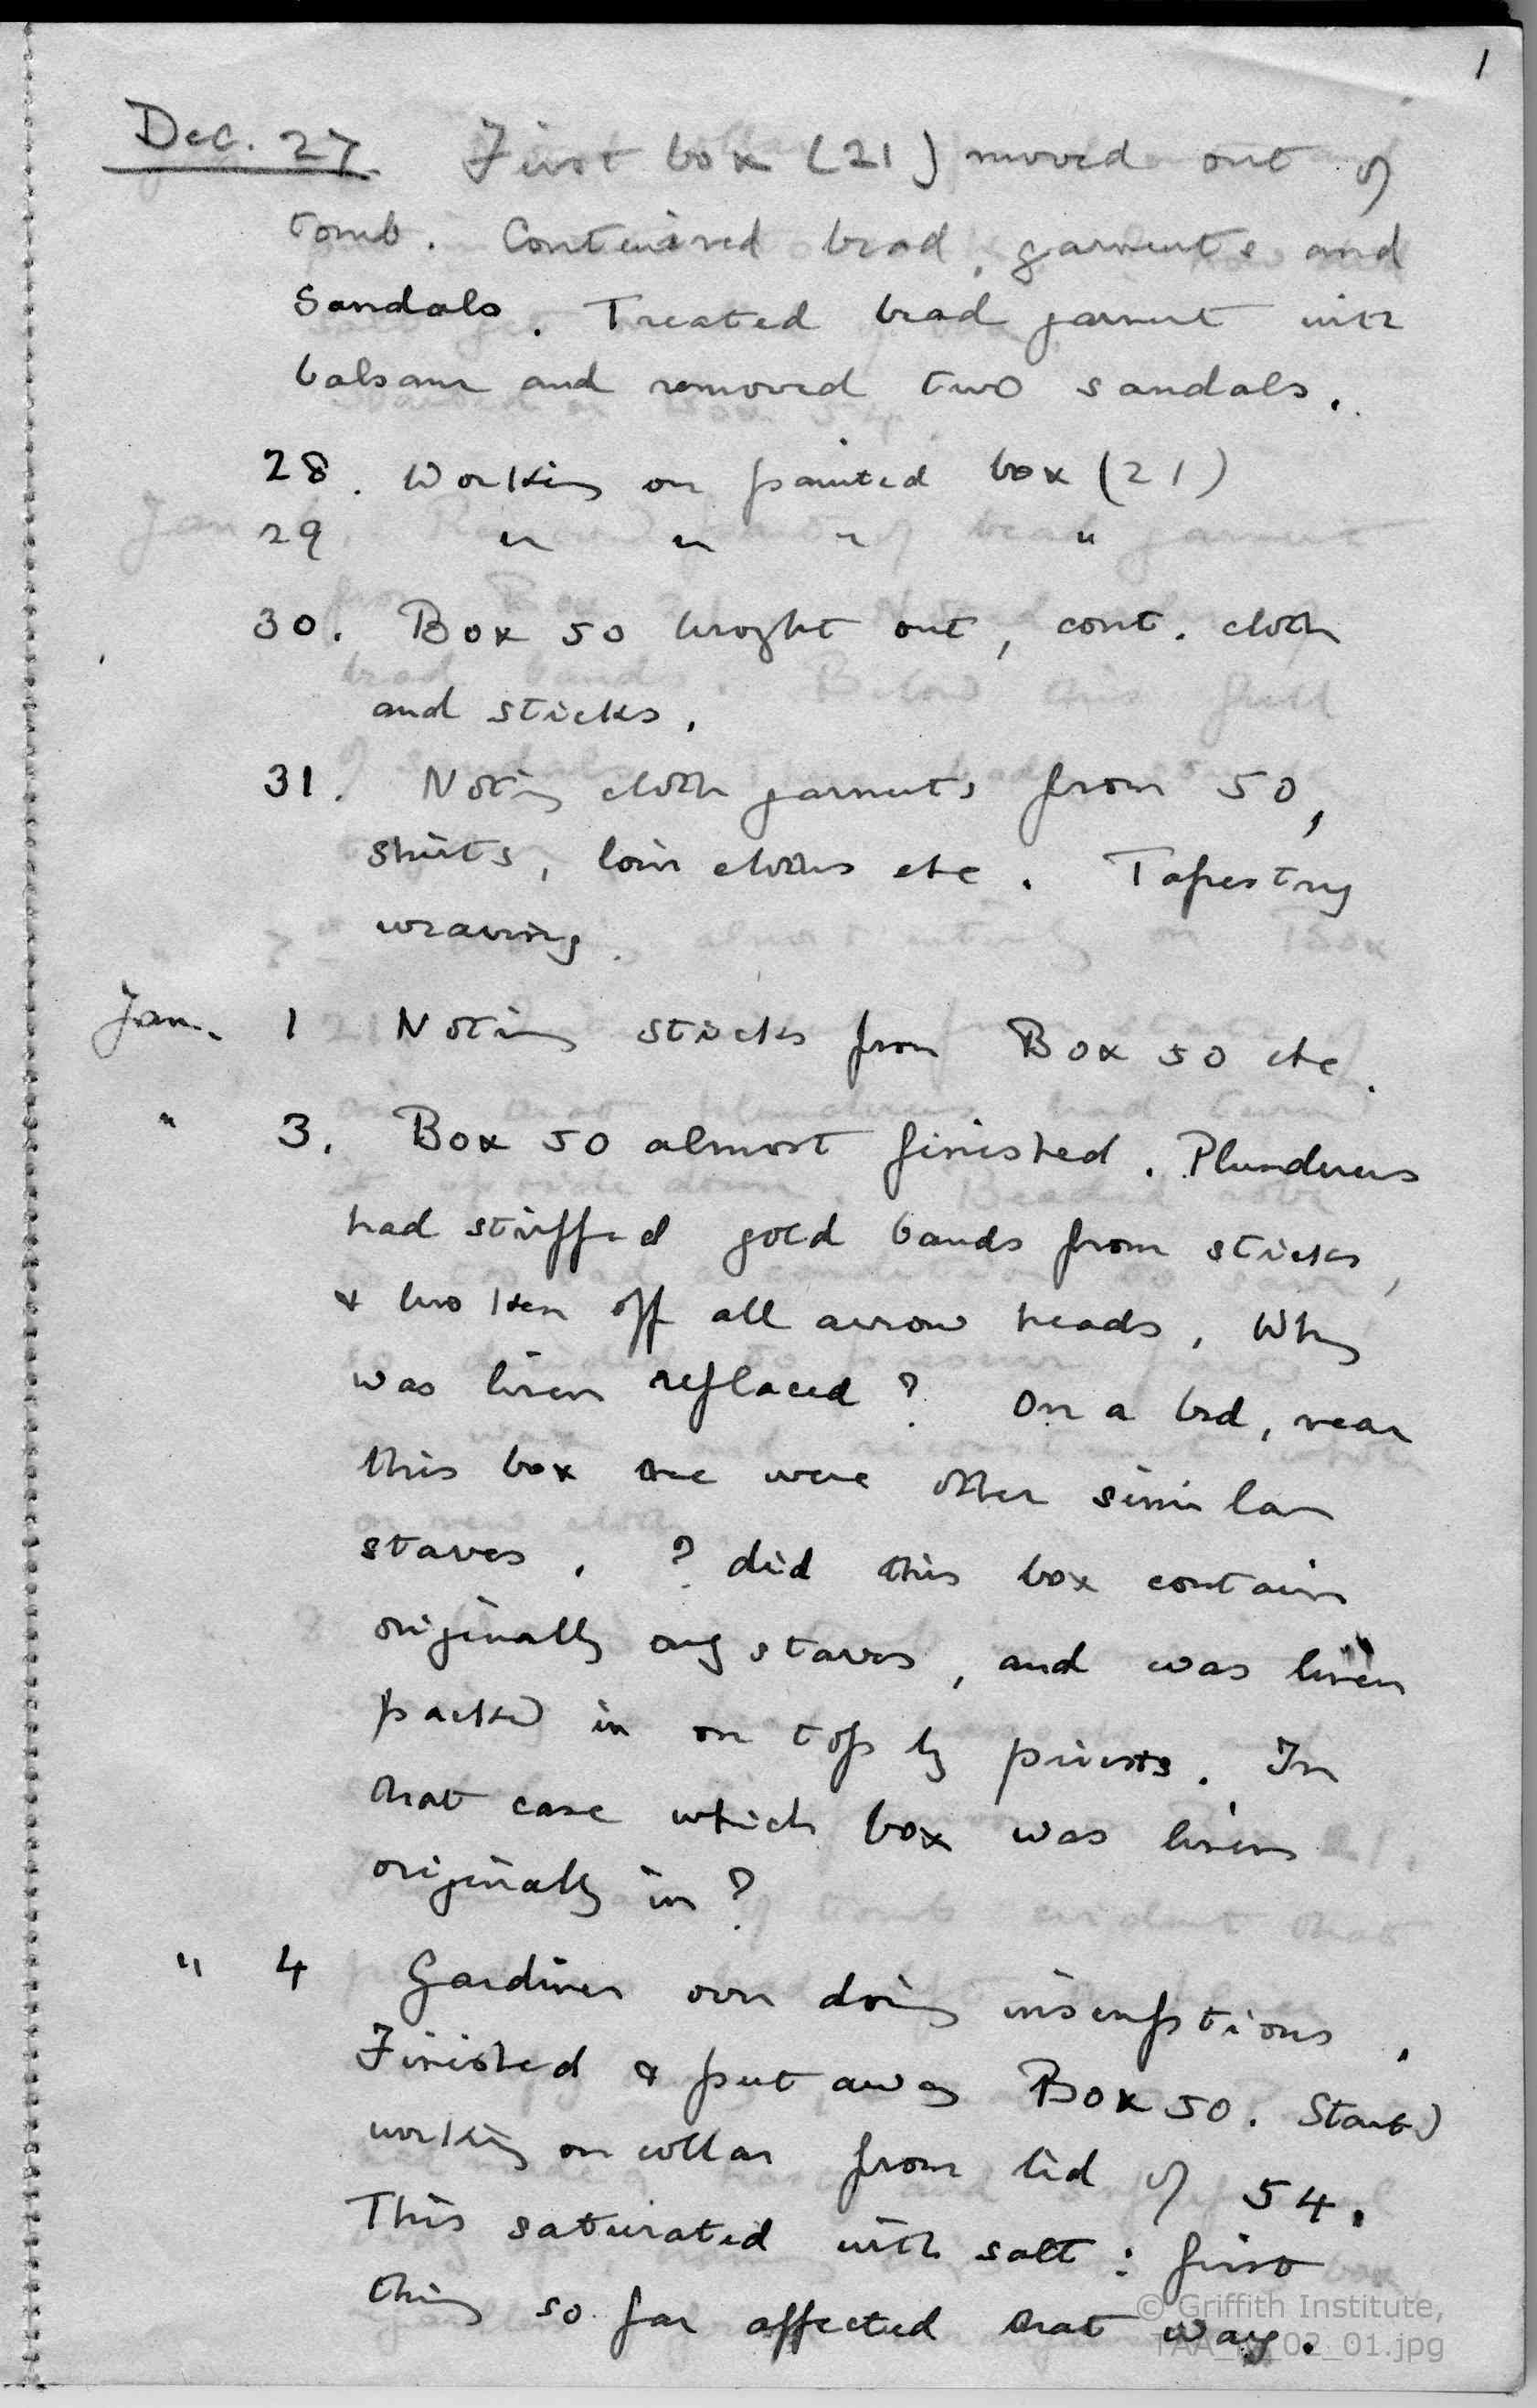 1
Dec. 27 First box (21) moved out of
tomb. Contained bead, garments and
Sandals. Treated bead garment with
balsam and removed two sandals.
28. Working on painted box (21)
29 " " " "
30. Box 50 brought out, cont. cloth
and sticks.
31. Noting cloth garments from 50,
shirts, loin cloths etc. Tapestry
weaving.
Jan. 1 Noting sticks from Box 50 etc.
" 3. Box 50 almost finished. Plunderers
had stripped gold bands from sticks,
& broken off all arrow heads. Why
was linen replaced? On a bed, near
this box were other similar
staves. ? did this box contain
originally only staves, and was linen
packed in on top by priests. In
that case which box was linen
originally in?
" 4 Gardiner over doing inscriptions.
Finished & put away Box 50. Started
working on collar from lid of 54.
This saturated with salt: first
thing so far affected that way.
© Griffith Institute,
02_01.jpg